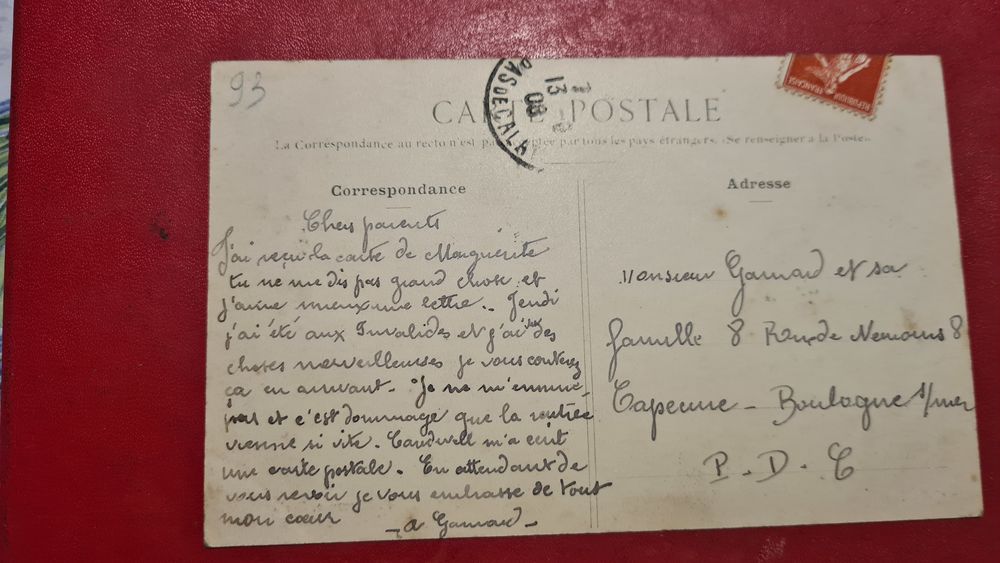 93
PAS DE CALAI
13
08
REPUBLIQUE FRANÇAISE
CARTE POSTALE
La Correspondance au recto n'est pas acceptée par tous les pays étrangers. (Se renseigner à la Poste).
Correspondance
Chers parents
J'ai reçu la carte de Marguerite
tu ne me dis pas grand chose et
j'aime mieux une lettre. Jeudi
j'ai été aux Invalides et j'ai vu des
choses merveilleuses je vous conterez
ça en arrivant. Je ne m'ennuie
pas et c'est dommage que la rentrée
vienne si vite. m'a écrit
une carte postale. En attendant de
vous revoir je vous embrasse de tout
mon cœur - a Gamard -
Adresse
Monsieur Gamard et sa
famille 8 Rue de Nemours 8
Capecure - Boulogne s/mer
P. D. C